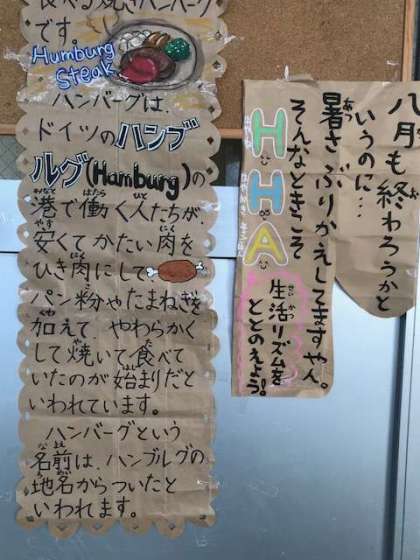 食べる焼きハンバーグ
です。
Humburg
Steak
ハンバーグは、
ドイツのハンブ
ルグ(Hamburg)の
港で働く人たちが、
安くてかたい肉を
ひき肉にして、
パン粉やたまねぎを
加えて やわらかく
して焼いて食べて
いたのが始まりだと
いわれています。
ハンバーグという
名前は、ハンブルグの
地名からついたと
いわれます。
八月も終わろうかと
いうのに…
暑さぶりかえしてますやん。
そんなときこそ
HHA
生活リズムを
ととのえよう!